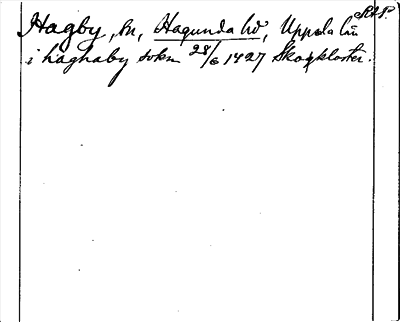 RAP.
Hagby, sn, Hagunda hd, Uppsala län
i haghaby sokn 28/6 1427 Skokloster.